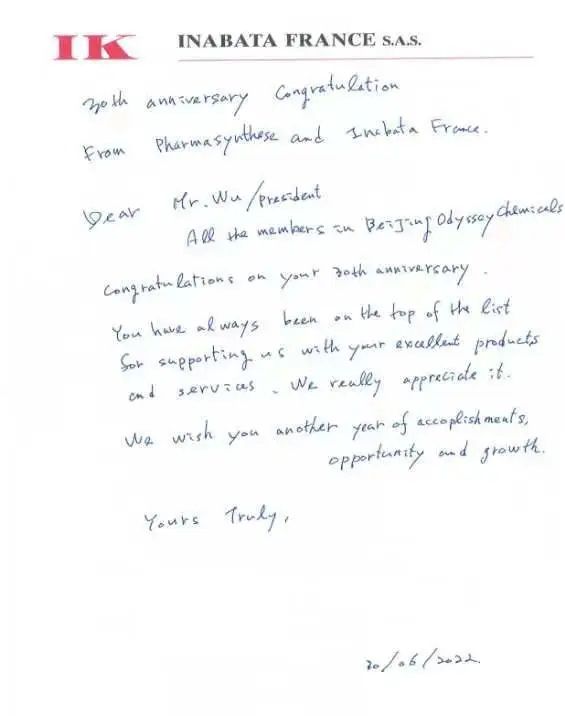 IK INABATA FRANCE S.A.S.
30th anniversary Congratulation
From Pharmasynthese and Inabata France.
Dear Mr. Wu/president
All the members in Beijing Odyssey Chemicals
Congratulations on your 30th anniversary.
You have always been on the top of the list
for supporting us with your excellent products
and services. We really appreciate it.
We wish you another year of accoplishments,
opportunity and growth.
Yours Truly,
20/06/2022.